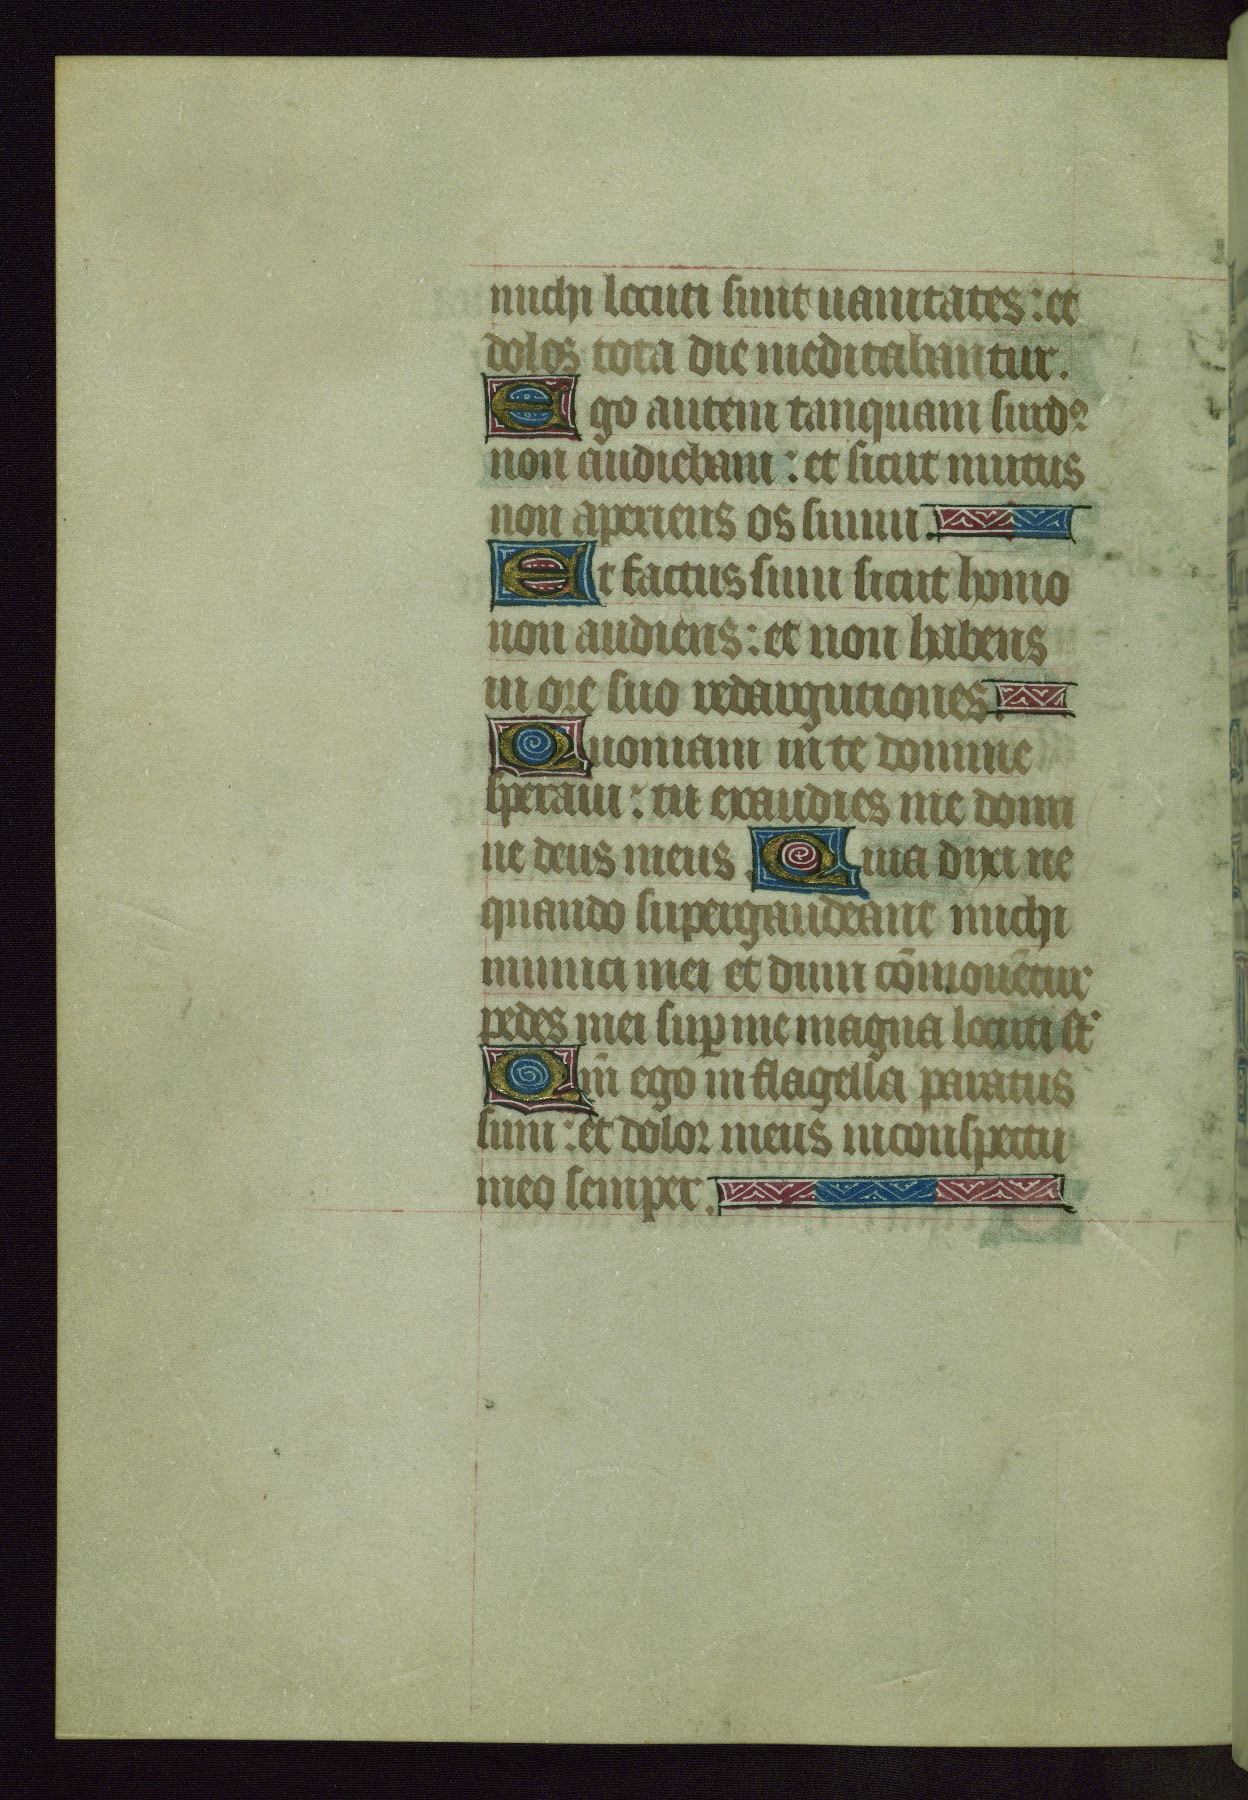 michi locuti sunt uanitates : et
dolos tota die meditabantur .
Ego autem tanquam surdꝰ
non audiebam : et sicut mutus
non aperiens os suum .
Et factus sum sicut homo
non audiens : et non habens
in ore suo redargutiones .
Quoniam in te domine
speraui : tu exaudies me domi
ne deus meus . Quia dixi ne
quando supergaudeant michi
inimici mei et dum cōmouētur
pedes mei suꝑ me magna locuti st̄
Qm̄ ego in flagella paratus
sum : et dolor meus in conspectu
meo semper .